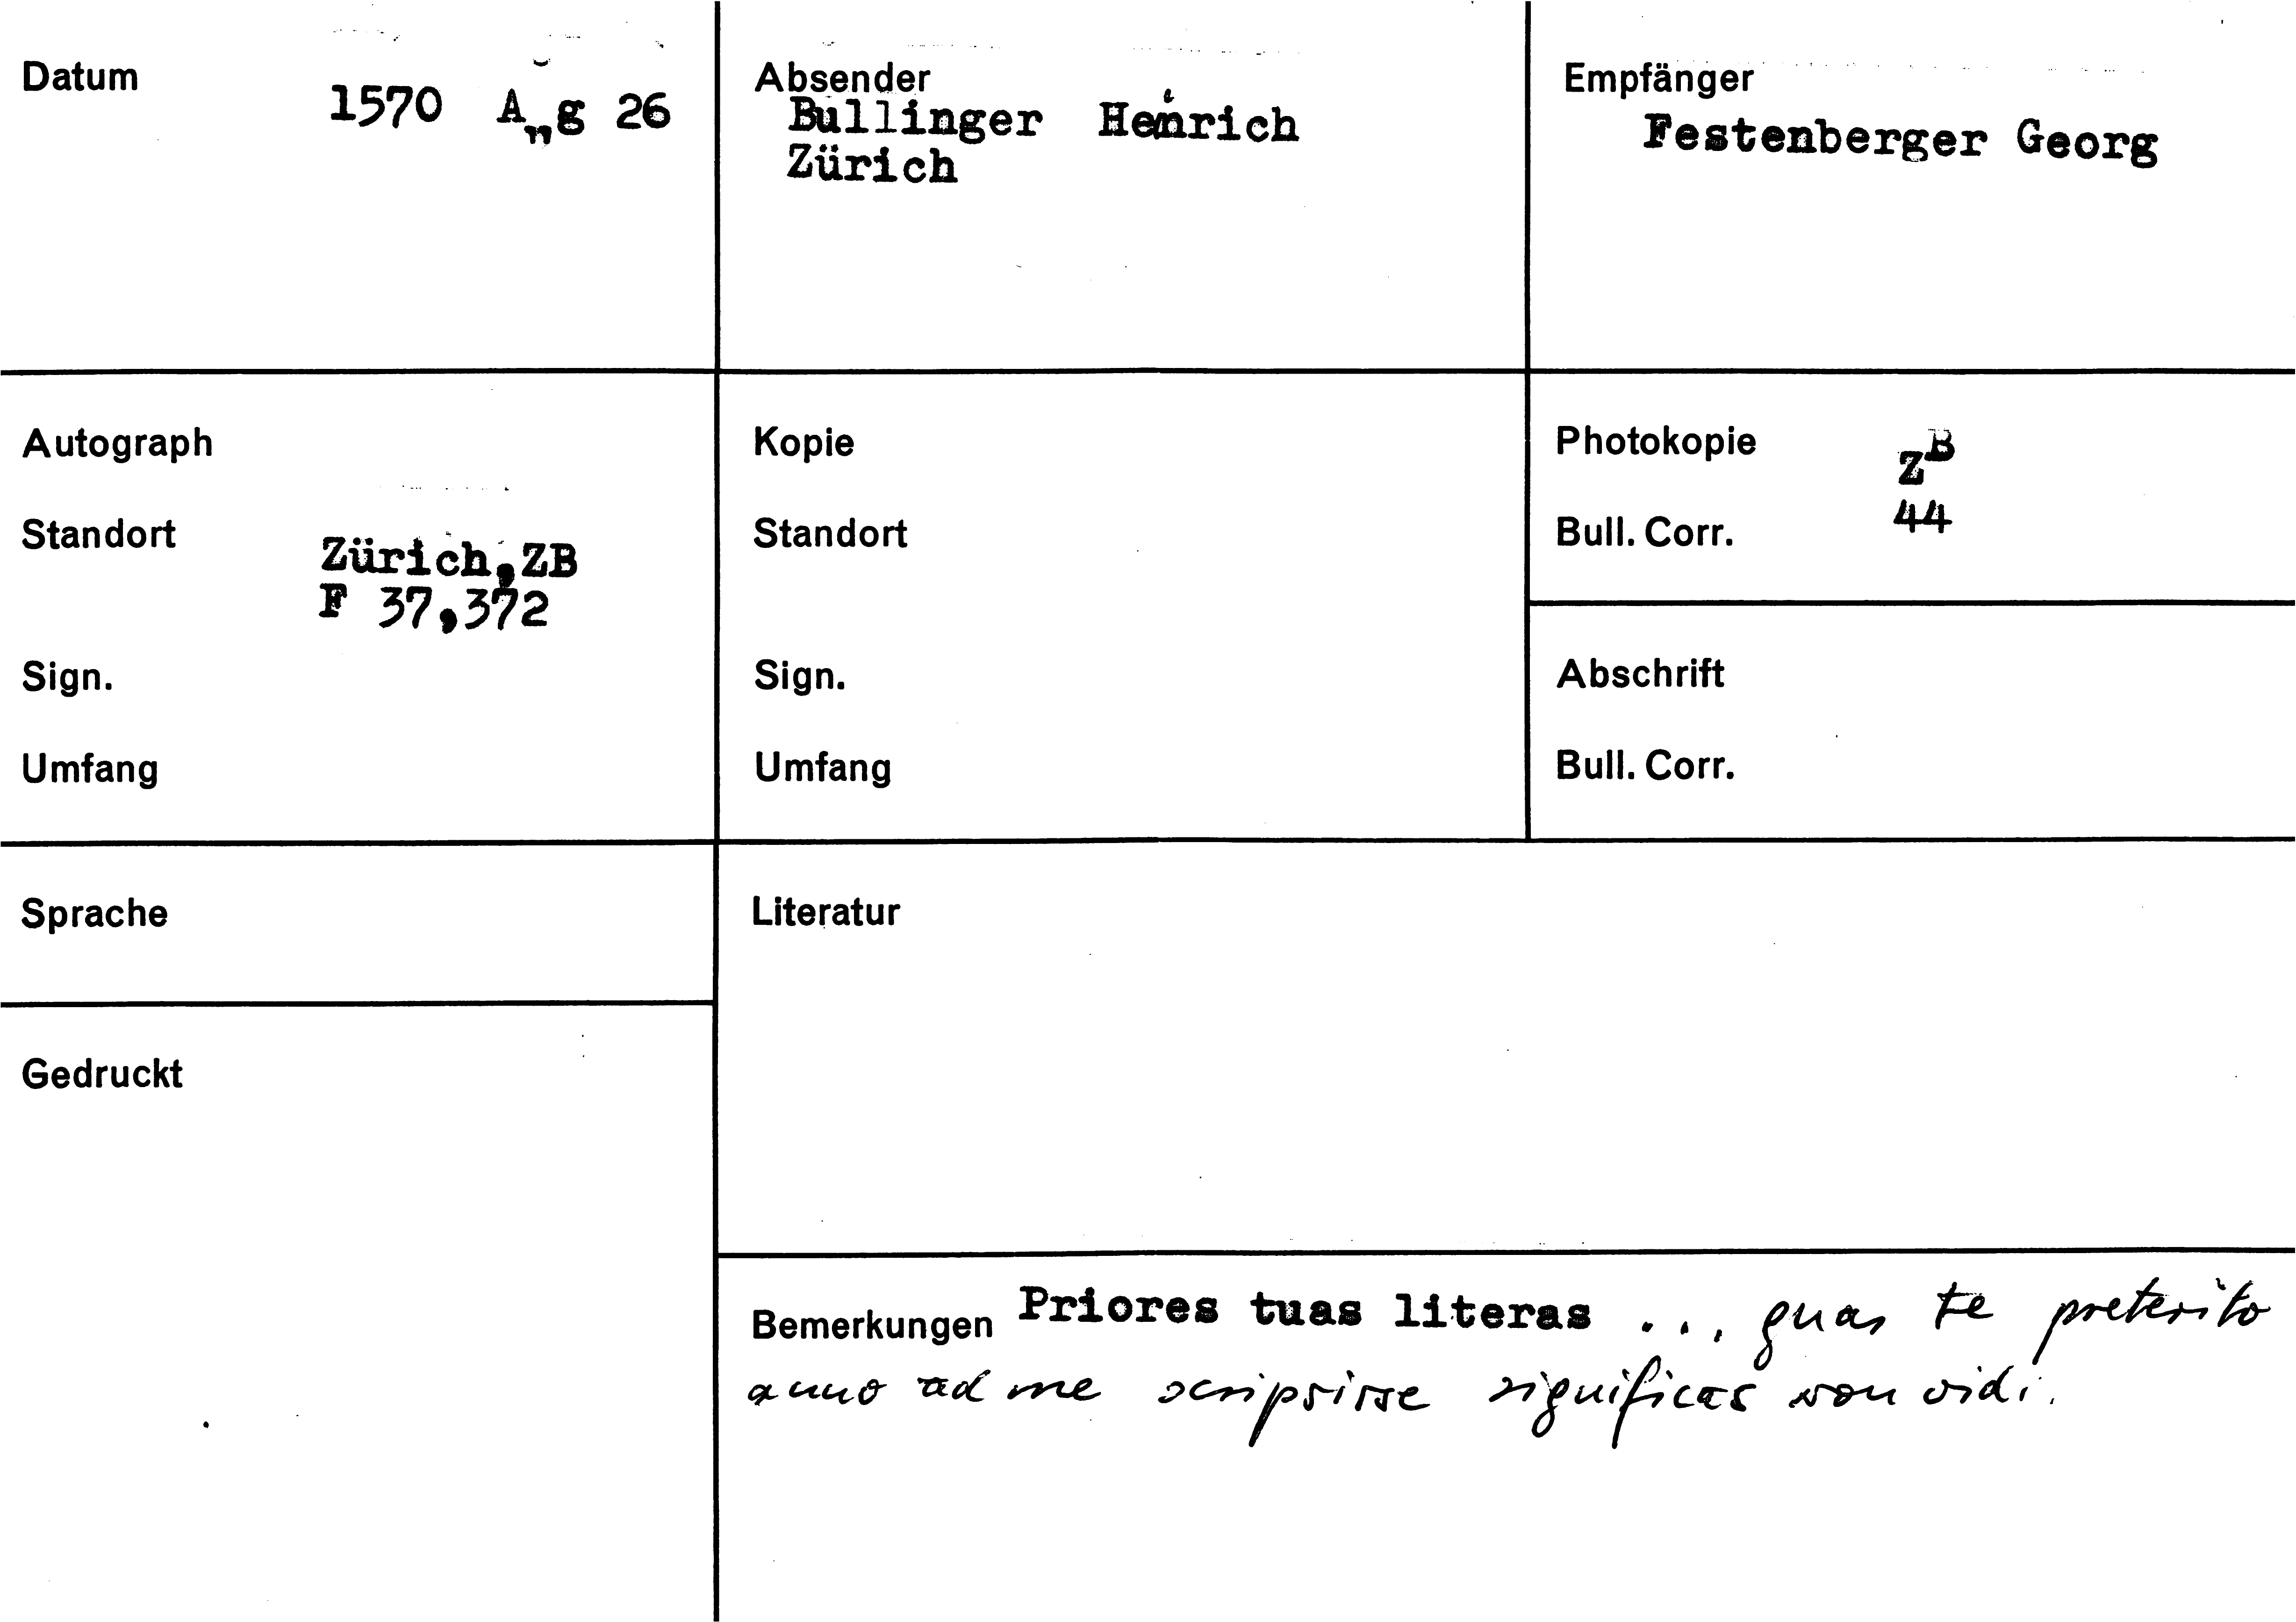 Datum
1570 Aug 26
Absender
Bullinger Heinrich
Zürich
Empfänger
Festenberger Georg
Autograph
Standort
Zürich, ZB
F 37,372
Sign.
Umfang
Kopie
Standort
Sign.
Umfang
Photokopie ZB
Bull. Corr. 44
Abschrift
Bull. Corr.
Sprache
Gedruckt
Literatur
Bemerkungen Priores tuas literas ... quas te preterito
anno ad me scripsisse significas non vidi.